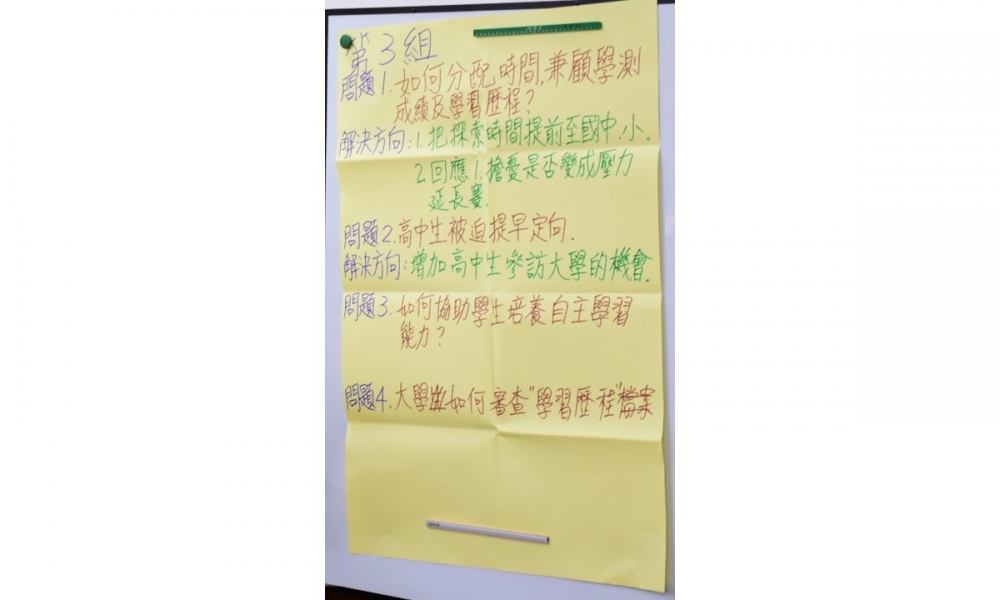 第3組
問題1.如何分配時間,兼顧學測
成績及學習歷程?
解決方向:1.把探索時間提前至國中、小.
2.回應1.擔憂是否變成壓力
延長賽.
問題2.高中生被迫提早定向.
解決方向:增加高中生參訪大學的機會.
問題3.如何協助學生培養自主學習
能力?
問題4.大學如何審查"學習歷程"檔案